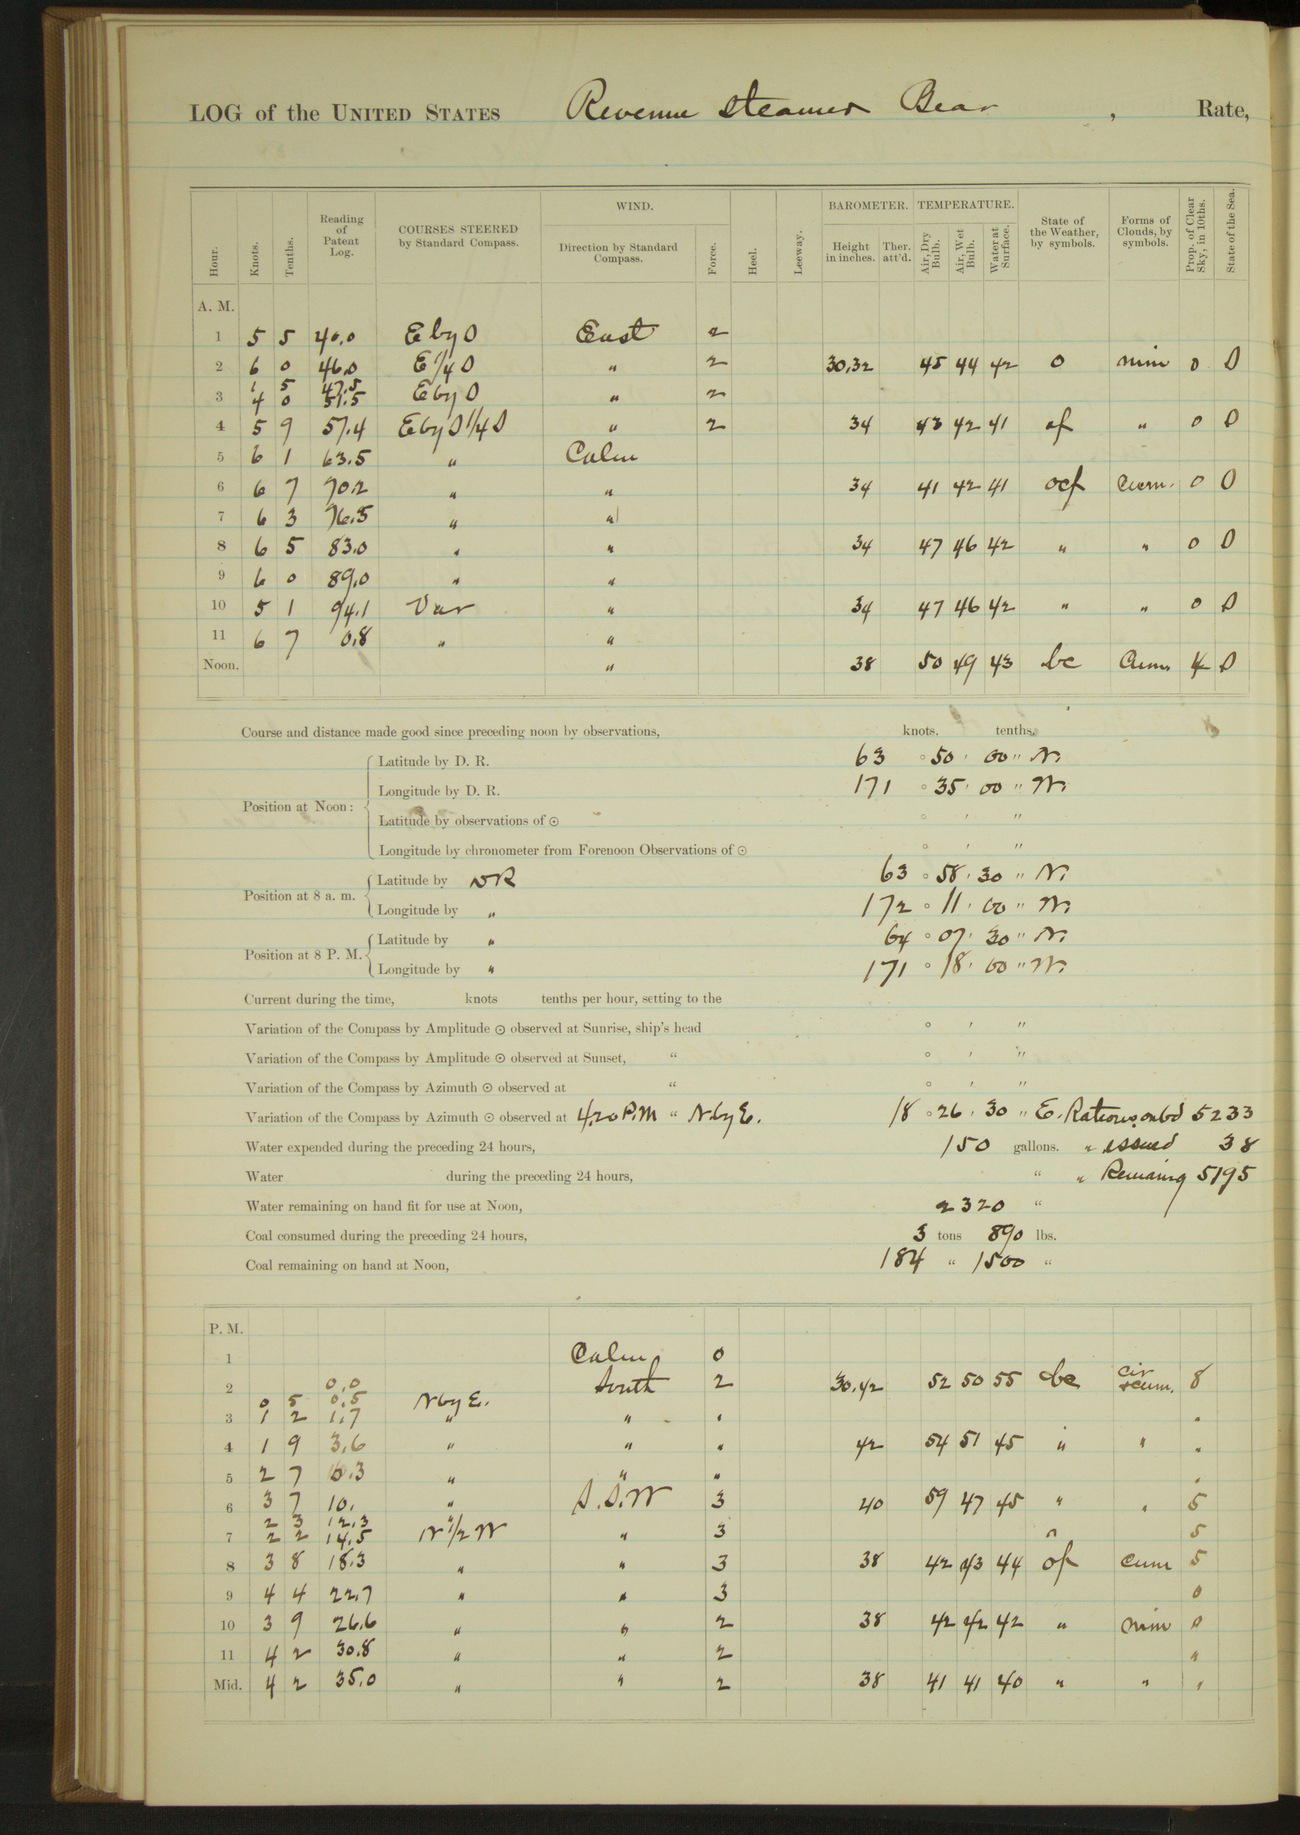 LOG of the UNITED STATES Revenue steamer Bear , Rate,
WIND. BAROMETER. TEMPERATURE.
Hour. Knots. Tenths. Reading of Patent Log. COURSES STEERED by Standard Compass. Direction by Standard Compass. Force. Heel. Leeway. Height in inches. Ther. att'd. Air, Dry Bulb. Air, Wet Bulb. Water at Surface. State of the Weather, by symbols. Forms of Clouds, by symbols. Prop. of Clear Sky, in 10ths. State of the Sea.
A. M.
1 5 5 40.0 E by S East 2
2 6 0 46.0 E 1/4 S " 2 30.32 45 44 42 o nim 0 S
1 5 47.5
3 4 0 51.5 E by S " 2
4 5 9 57.4 E by S 1/4 S " 2 34 43 42 41 of " 0 S
5 6 1 63.5 " Calm
6 6 7 70.2 " " 34 41 42 41 ocf Cum. 0 S
7 6 3 76.5 " "
8 6 5 83.0 " " 34 47 46 42 " " 0 S
9 6 0 89.0 " "
10 5 1 94.1 Var " 34 47 46 42 " " 0 S
11 6 7 0.8 " "
Noon. " 38 50 49 43 bc Cum. 4 S
Course and distance made good since preceding noon by observations, knots. tenths.
Latitude by D. R. 63 ° 50 ' 00 " N.
Longitude by D. R. 171 ° 35 ' 00 " W.
Position at Noon:
Latitude by observations of ☉ ° ' "
Longitude by chronometer from Forenoon Observations of ☉ ° ' "
Latitude by DR 63 ° 58 ' 30 " N.
Position at 8 a. m.
Longitude by " 172 ° 11 ' 00 " W.
Latitude by " 64 ° 07 ' 30 " N.
Position at 8 P. M.
Longitude by " 171 ° 18 ' 00 " W.
Current during the time, knots tenths per hour, setting to the
Variation of the Compass by Amplitude ☉ observed at Sunrise, ship's head ° ' "
Variation of the Compass by Amplitude ☉ observed at Sunset, " ° ' "
Variation of the Compass by Azimuth ☉ observed at " ° ' "
Variation of the Compass by Azimuth ☉ observed at 4.20 P.M " N by E. 18 ° 26 ' 30 " E. Rations onbd 5233
Water expended during the preceding 24 hours, 150 gallons. " issued 38
Water during the preceding 24 hours, " " Remaing 5195
Water remaining on hand fit for use at Noon, 2320 "
Coal consumed during the preceding 24 hours, 3 tons 890 lbs.
Coal remaining on hand at Noon, 184 " 1500 "
P. M.
1 Calm 0
2 0.0 South 2 30.42 52 50 55 bc Cir + Cum. 8
0 5 0.5 N by E.
3 1 2 1.7 " " " "
4 1 9 3.6 " " " 42 54 51 45 " " "
5 2 7 6.3 " " " "
6 3 7 10. " S.S.W 3 40 59 47 45 " " 5
2 3 12.3 "
7 2 2 14.5 N 1/2 W " 3 " 5
8 3 8 18.3 " " 3 38 42 43 44 of Cum 5
9 4 4 22.7 " " 3 0
10 3 9 26.6 " " 2 38 42 42 42 " nim 0
11 4 2 30.8 " " 2 "
Mid. 4 2 35.0 " " 2 38 41 41 40 " " "